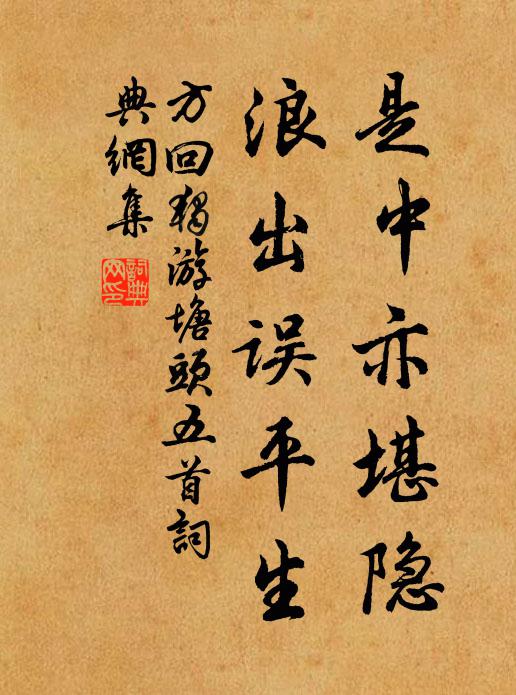 是中亦堪隐
浪出误平生
方回独游塘頭五首詞
典網集
詞典网印